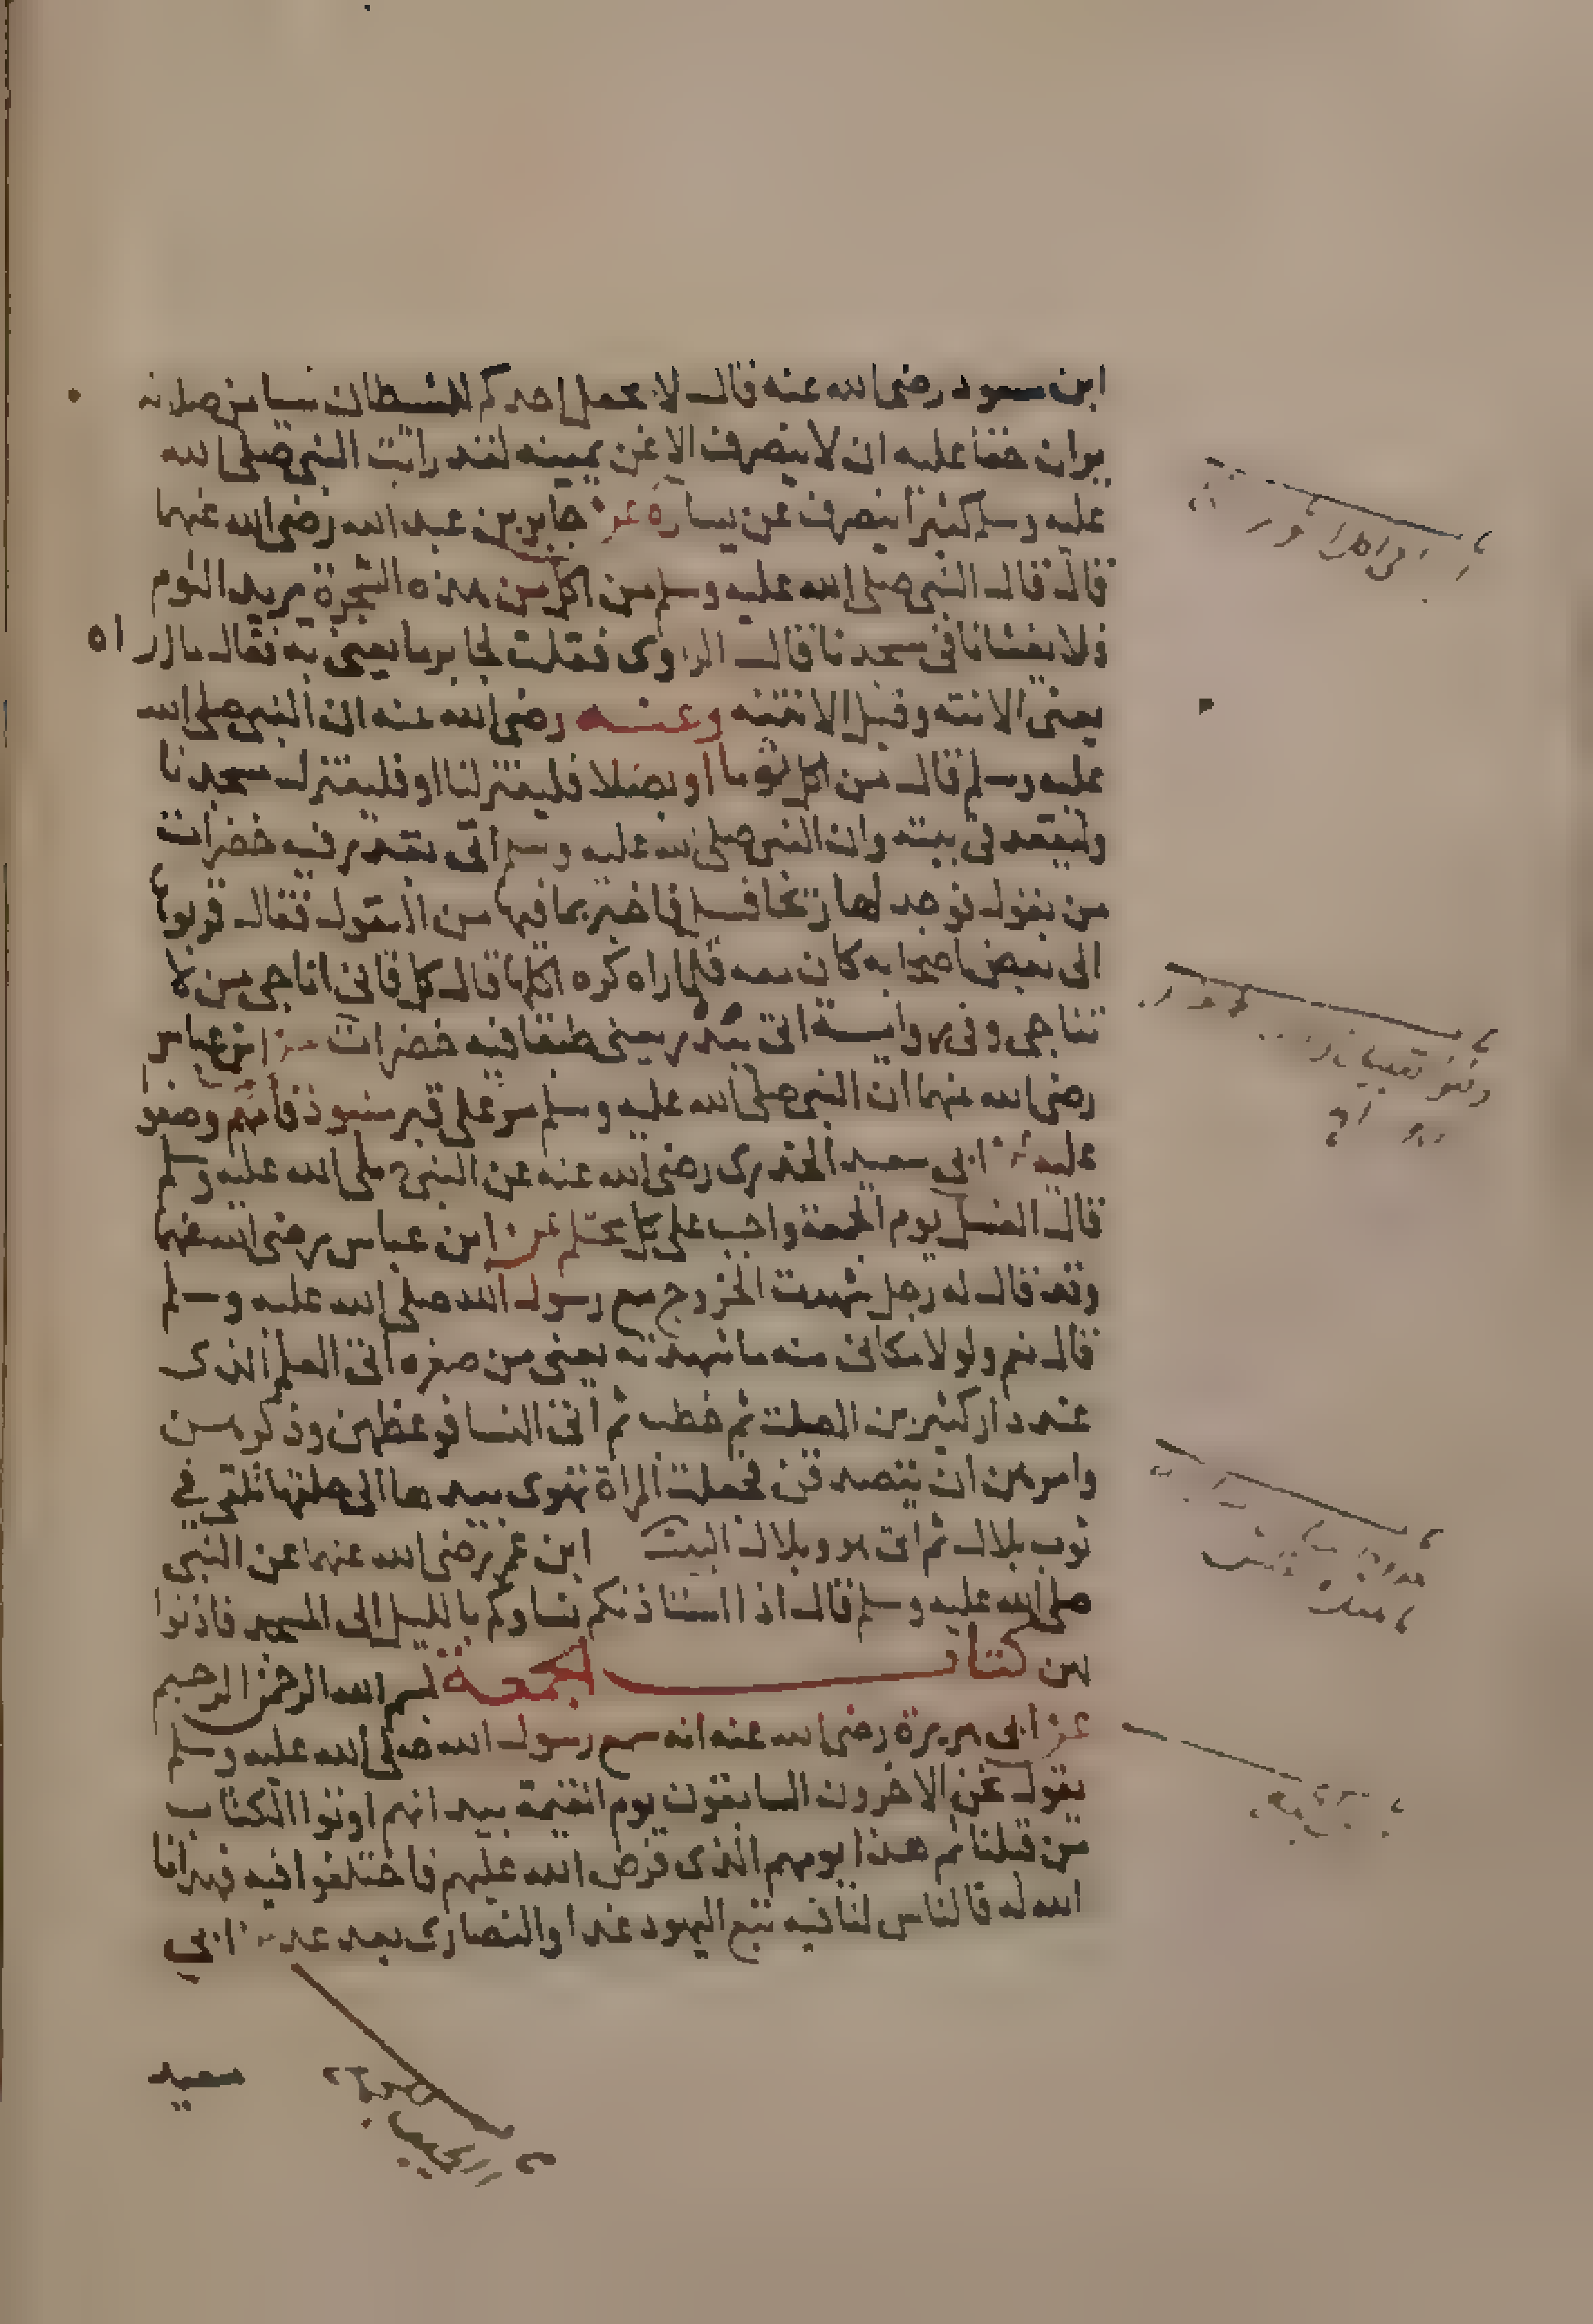 ابن مسعود رضي الله عنه قال لا يجعل احدكم للشيطان شيا من صلاته
يران حقا عليه ان لا ينصرف الا عن يمينه لقد رايت النبي صلى الله
عليه وسلم كثيرا ينصرف عن يساره عن جابر بن عبد الله رضي الله عنهما
قال قال النبي صلى الله عليه وسلم من اكل من هذه الشجرة يريد الثوم
فلا يغشانا في مسجدنا قال الراوي فقلت لجابر ما يعني به فقال ما اراه
يعني الا نته وقيل الا نتنه وعنه رضي الله عنه ان النبي صلى الله
عليه وسلم قال من اكل ثوما او بصلا فليعتزلنا او فليعتزل مسجدنا
وليقعد في بيته وان النبي صلى الله عليه وسلم اتي بقدر فيه خضرات
من بقول فوجد لها ريحا فسال فاخبر بما فيها من البقول فقال قربوها
الى بعض اصحابه كان معه فلما راه كره اكلها قال كل فاني اناجي من لا
تناجي وفي رواية اتي ببدر يعني طبقا فيه خضرات عن ابن عباس
رضي الله عنهما ان النبي صلى الله عليه وسلم مر على قبر منبوذ فامهم وصفوا
عليه عن ابي سعيد الخدري رضي الله عنه عن النبي صلى الله عليه وسلم
قال الغسل يوم الجمعة واجب على كل محتلم عن ابن عباس رضي الله عنهما
وقد قال له رجل شهدت الخروج مع رسول الله صلى الله عليه وسلم
قال نعم ولولا مكاني منه ما شهدته يعني من صغره اتى العلم الذي
عند دار كثير بن الصلت ثم خطب ثم اتى النسا فوعظهن وذكرهن
وامرهن ان يتصدقن فجعلت المراة تهوى بيدها الى حلقها تلقي في
ثوب بلال ثم اتى هو وبلال البيت ابن عمر رضي الله عنهما عن النبي
صلى الله عليه وسلم قال اذا استاذنكم نساوكم بالليل الى المسجد فاذنوا
لهن كتاب الجمعة بسم الله الرحمن الرحيم
عن ابي هريرة رضي الله عنه انه سمع رسول الله صلى الله عليه وسلم
يقول نحن الاخرون السابقون يوم القيمة بيد انهم اوتوا الكتاب
من قبلنا ثم هذا يومهم الذي فرض الله عليهم فاختلفوا فيه فهدانا
الله له فالناس لنا فيه تبع اليهود غدا والنصارى بعد غد عن ابي
سعيد